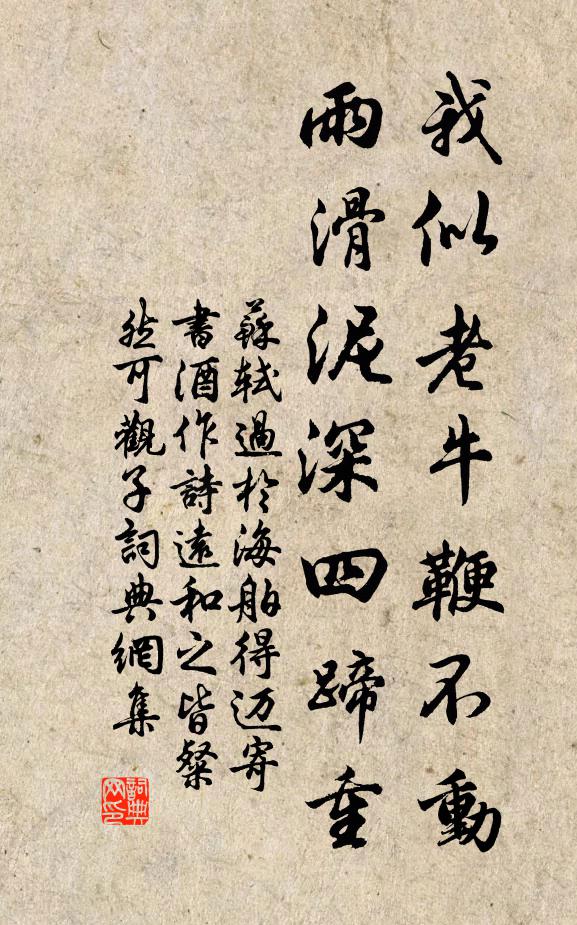 我似老牛鞭不動
雨滑泥深四蹄重
蘇軾過於海舶得迈寄
書酒作詩遠和之皆粲
然可觀子詞典網集
詞典
网印